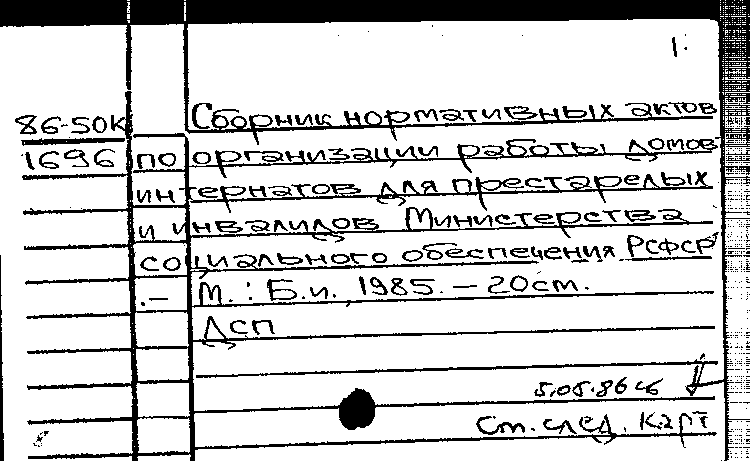 1.
86-50К Сборник нормативных актов
1696 по организации работы домов
интернатов для престарелых
и инвалидов Министерства
социального обеспечения РСФСР
.– М.: Б.и., 1985. – 20 см.
ДСП
5.05.86
См. след. карт